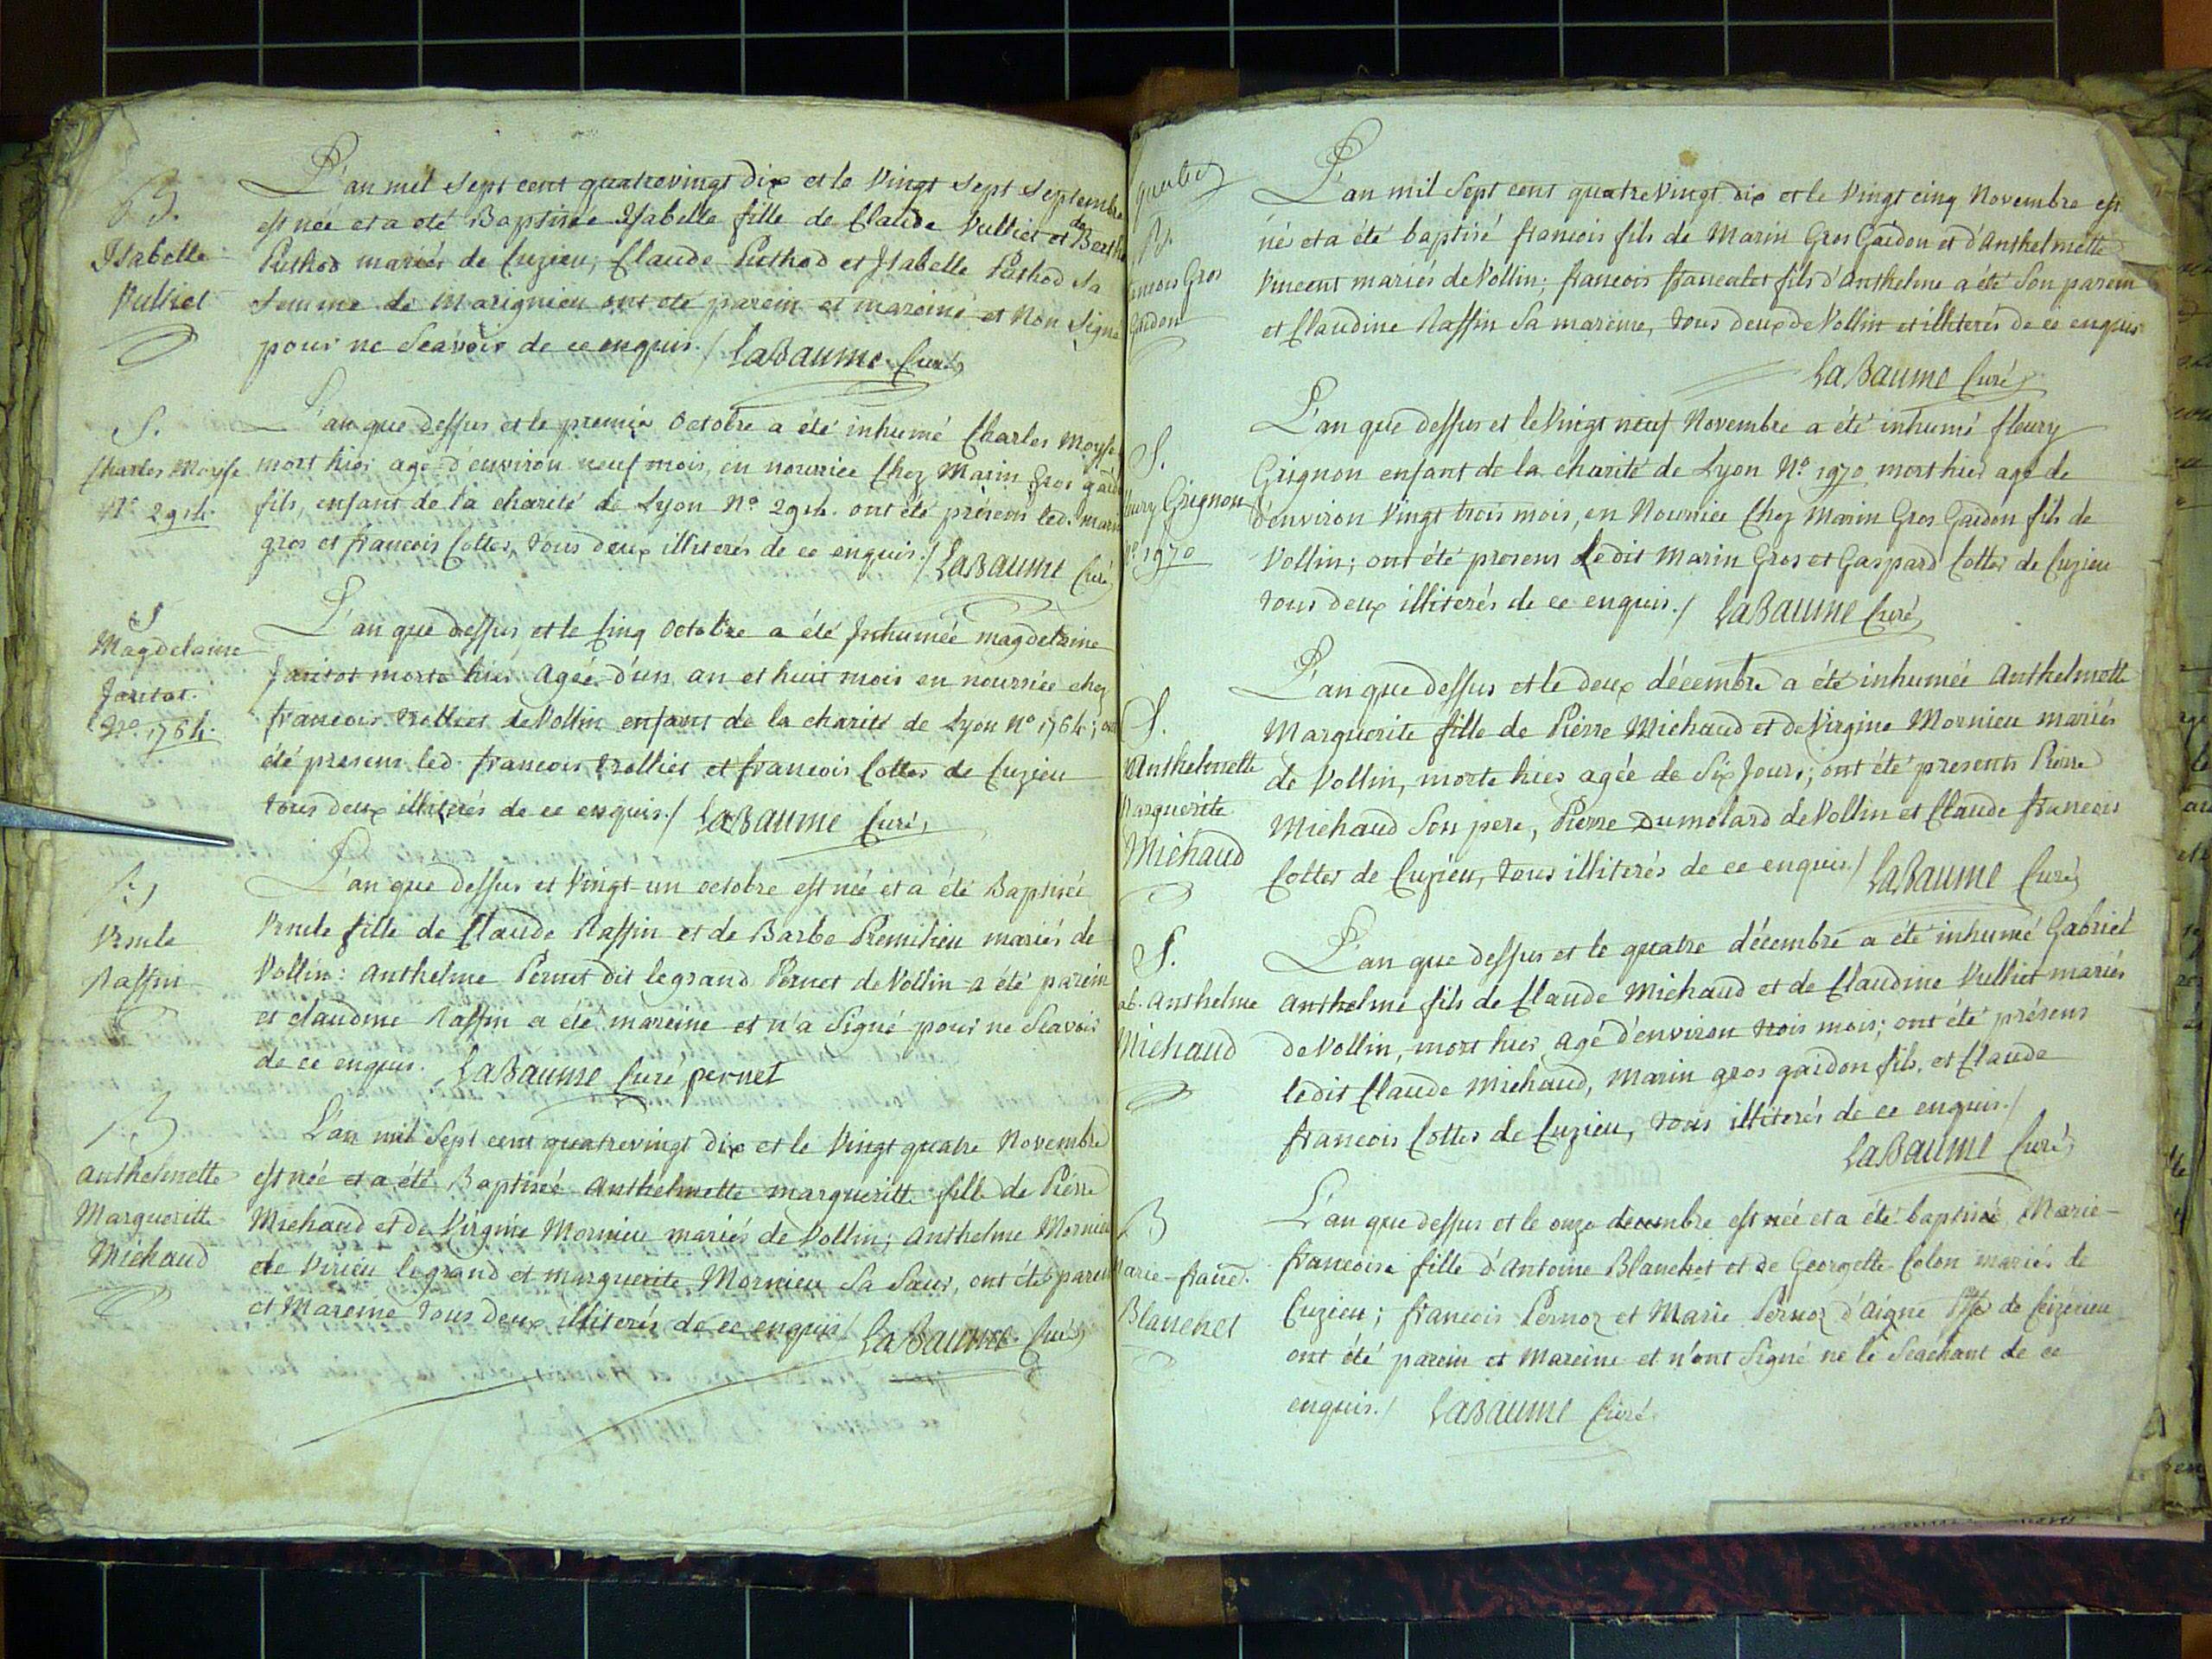 B.
Isabelle
Vulliet
L'an mil sept cent quatrevingt dix et le vingt sept septembre
est née et a eté Baptisée Isabelle fille de Claude Vulliet et de Berth
Puthod mariés de Cuzieu; Claude Puthod et Isabelle Puthod sa
femme de Marignieu ont eté parein et mareine et non signé
pour ne sçavoir de ce enquis./ LaBaume Curé
S.
Charles Moyse
N° 294.
L'an que dessus et le premier Octobre a été inhumé Charles Moyse
mort hier agé d'environ neuf mois, en nourrice chez Marin Gros gaid
fils, enfant de la charité de Lyon N° 294. ont été présens led. marin
gros et francois Cottes, tous deux illiterés de ce enquis./ LaBaume Curé
S
Magdelaine
Jaritot.
N°. 1764.
L'an que dessus et le Cinq Octobre a été Inhumée magdelaine
Jaritot morte hier agée d'un an et huit mois en nourrice chez
francois Trolliet de Vollin enfant de la charité de Lyon N° 1764; ont
été presens led. francois Trolliet et francois Cottes de Cuzieu
tous deux illiterés de ce enquis./ LaBaume Curé
B
Ursule
Raffin
L'an que dessus et Vingt-un octobre est née et a été Baptisée
Ursule fille de Claude Raffin et de Barbe Premilieu mariés de
Vollin: Anthelme Pernet dit legrand Pernet de Vollin a été parein
et claudine Raffin a été mareine et n'a signé pour ne sçavoir
de ce enquis. LaBaume Curé pernet
B
anthelmette
Margueritte
Michaud
L'an mil sept cent quatrevingt dix et le Vingt quatre Novembre
est née et a été Baptisée Anthelmette margueritte fille de Pierre
Michaud et de Virgine Mornieu mariés de Vollin; Anthelme Mornieu
de Virieu legrand et marguerite Mornieu sa sœur, ont été parein
et Mareine tous deux illiterés de ce enquis/ LaBaume Curé
B.
ancois Gros
Gaidon
L'an mil sept cent quatre Vingt dix et le Vingt cinq Novembre est
né et a été baptisé francois fils de Marin Gros Gaidon et d'Anthelmette
Vincent mariés de Vollin; francois francalet fils d'Anthelme a été son parein
et Claudine Raffin sa mareine, tous deux de Vollin et illiterés de ce enquis
LaBaume Curé
S.
fleury Grignon
N° 1970
L'an que dessus et le Vingt neuf Novembre a été inhumé fleury
Grignon enfant de la charité de Lyon N° 1970 mort hier agé de
d'environ Vingt trois mois, en Nourrice chez Marin Gros Gaidon fils de
Vollin; ont été presens Le dit Marin Gros et Gaspard Cottes de Cuzieu
tous deux illiterés de ce enquis./ LaBaume Curé
S.
Anthelmette
Marguerite
Michaud
L'an que dessus et le deux décembre a été inhumée Anthelmette
Marguerite fille de Pierre Michaud et de Virgine Mornieu mariés
de Vollin, morte hier agée de Six Jours; ont été presents Pierre
Michaud son pere, Pierre Dumolard de Vollin et Claude francois
Cottes de Cuzieu, tous illiterés de ce enquis./ LaBaume Curé
S.
ab. Anthelme
Michaud
L'an que dessus et le quatre décembre a été inhumé Gabriel
Anthelme fils de Claude Michaud et de Claudine Vulliet mariés
de Vollin, mort hier agé d'environ trois mois; ont été présens
ledit Claude Michaud, Marin gros gaidon fils, et Claude
francois Cottes de Cuzieu, tous illiterés de ce enquis./
LaBaume Curé
B
Marie-franc.
Blanchet
L'an que dessus et le onze decembre est née et a été baptisée Marie-
francoise fille d'Antoine Blanchet et de Georgette Colon mariés de
Cuzieu; francois Pernoz et Marie Pernoz d'aigne Psse de Ceizérieu
ont été parein et Mareine et n'ont signé ne le Sçachant de ce
enquis./ LaBaume Curé